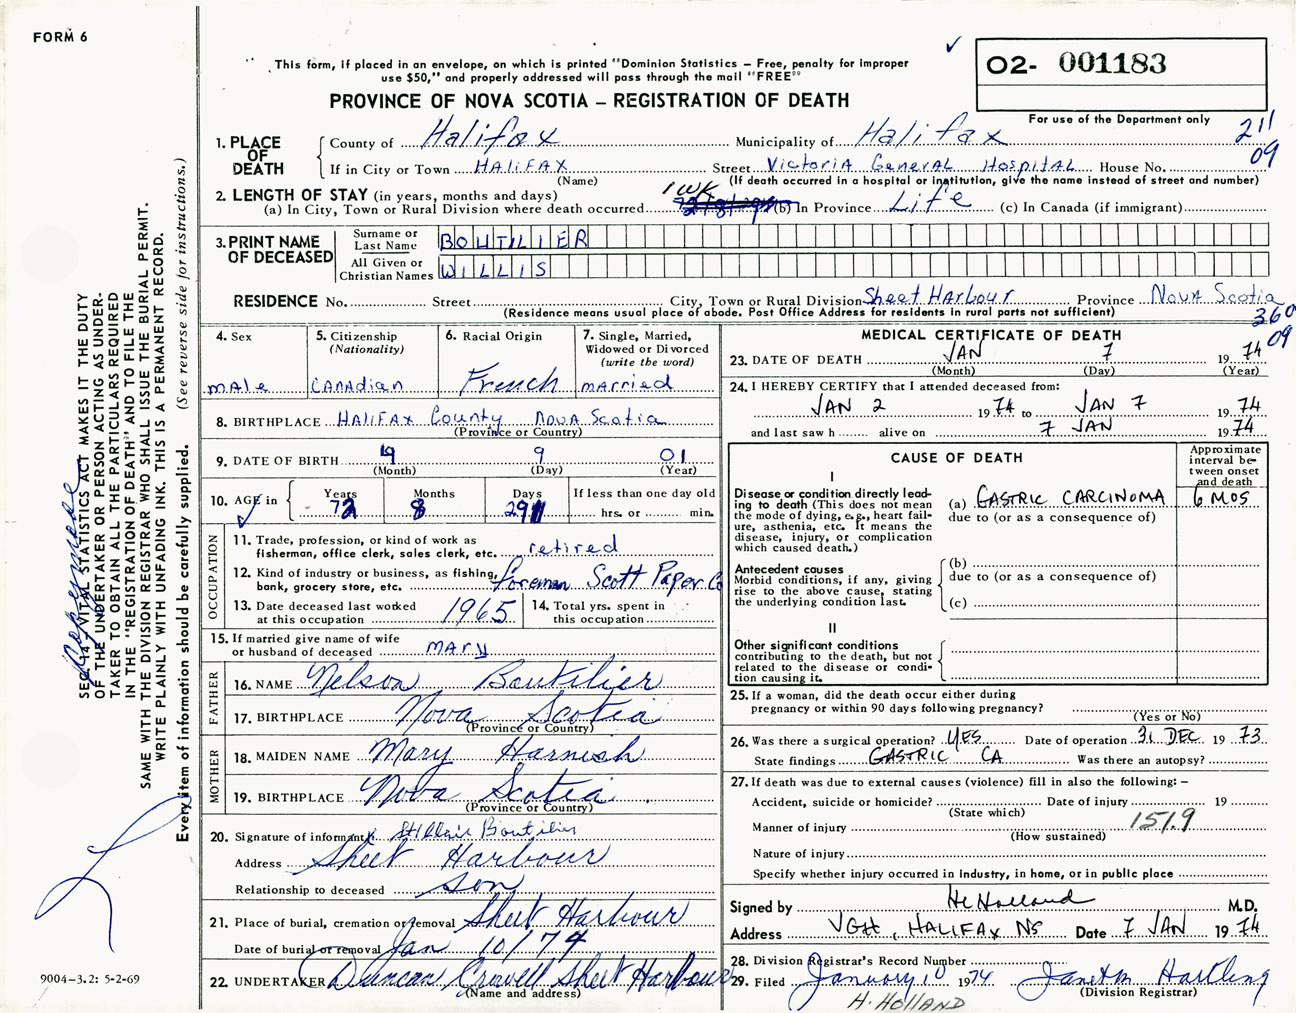 FORM 6
This form, if placed in an envelope, on which is printed "Dominion Statistics – Free, penalty for improper
use $50," and properly addressed will pass through the mail "FREE"
PROVINCE OF NOVA SCOTIA – REGISTRATION OF DEATH
02- 001183
For use of the Department only
211
09
1. PLACE OF DEATH
County of Halifax Municipality of Halifax
If in City or Town HALIFAX Street Victoria General Hospital House No.
(Name) (If death occurred in a hospital or institution, give the name instead of street and number)
2. LENGTH OF STAY (in years, months and days)
(a) In City, Town or Rural Division where death occurred 1 WK (b) In Province Life (c) In Canada (if immigrant)
3. PRINT NAME OF DECEASED
Surname or Last Name BOUTILIER
All Given or Christian Names WILLIS
RESIDENCE No. Street City, Town or Rural Division Sheet Harbour Province Nova Scotia
(Residence means usual place of abode. Post Office Address for residents in rural parts not sufficient)
360
09
4. Sex
male
5. Citizenship
(Nationality)
Canadian
6. Racial Origin
French
7. Single, Married,
Widowed or Divorced
(write the word)
married
8. BIRTHPLACE Halifax County Nova Scotia
(Province or Country)
9. DATE OF BIRTH 4 9 01
(Month) (Day) (Year)
10. AGE in
Years Months Days If less than one day old
72 8 29 hrs. or min.
OCCUPATION
11. Trade, profession, or kind of work as
fisherman, office clerk, sales clerk, etc. retired
12. Kind of industry or business, as fishing,
bank, grocery store, etc. foreman Scott Paper Co
13. Date deceased last worked
at this occupation 1965
14. Total yrs. spent in
this occupation
15. If married give name of wife
or husband of deceased mary
FATHER
16. NAME Nelson Boutilier
17. BIRTHPLACE Nova Scotia
(Province or Country)
MOTHER
18. MAIDEN NAME Mary Harnish
19. BIRTHPLACE Nova Scotia
(Province or Country)
20. Signature of informant x St Clair Boutilier
Address Sheet Harbour
Relationship to deceased son
21. Place of burial, cremation or removal Sheet Harbour
Date of burial or removal Jan 10/74
22. UNDERTAKER Duncan Crowell Sheet Harbour
(Name and address)
MEDICAL CERTIFICATE OF DEATH
23. DATE OF DEATH JAN 7 1974
(Month) (Day) (Year)
24. I HEREBY CERTIFY that I attended deceased from:
JAN 2 1974 to JAN 7 1974
and last saw h alive on 7 JAN 1974
CAUSE OF DEATH
Approximate
interval be-
tween onset
and death
I
Disease or condition directly lead-
ing to death (This does not
mean the mode of dying, e.g., heart fail-
ure, asthenia, etc. It means the
disease, injury, or complication
which caused death.)
(a) GASTRIC CARCINOMA 6 MOS
due to (or as a consequence of)
Antecedent causes
Morbid conditions, if any, giving
rise to the above cause, stating
the underlying condition last.
(b)
due to (or as a consequence of)
(c)
II
Other significant conditions
contributing to the death, but not
related to the disease or condi-
tion causing it.
25. If a woman, did the death occur either during
pregnancy or within 90 days following pregnancy?
(Yes or No)
26. Was there a surgical operation? YES Date of operation 31 DEC 1973
State findings GASTRIC CA Was there an autopsy?
27. If death was due to external causes (violence) fill in also the following: –
Accident, suicide or homicide? Date of injury 19
(State which)
Manner of injury 151.9
(How sustained)
Nature of injury
Specify whether injury occurred in industry, in home, or in public place
Signed by H Holland M.D.
Address VGH, HALIFAX NS Date 7 JAN 1974
28. Division Registrar's Record Number
29. Filed January 10 1974 Janet M Hartling
(Division Registrar)
H. HOLLAND
9004-3.2: 5-2-69
SEC. 14 – VITAL STATISTICS ACT MAKES IT THE DUTY
OF THE UNDERTAKER OR PERSON ACTING AS UNDER-
TAKER TO OBTAIN ALL THE PARTICULARS REQUIRED
IN THE "REGISTRATION OF DEATH" AND TO FILE THE
SAME WITH THE DIVISION REGISTRAR WHO SHALL ISSUE THE BURIAL PERMIT.
WRITE PLAINLY WITH UNFADING INK. THIS IS A PERMANENT RECORD.
Every item of information should be carefully supplied. (See reverse side for instructions.)